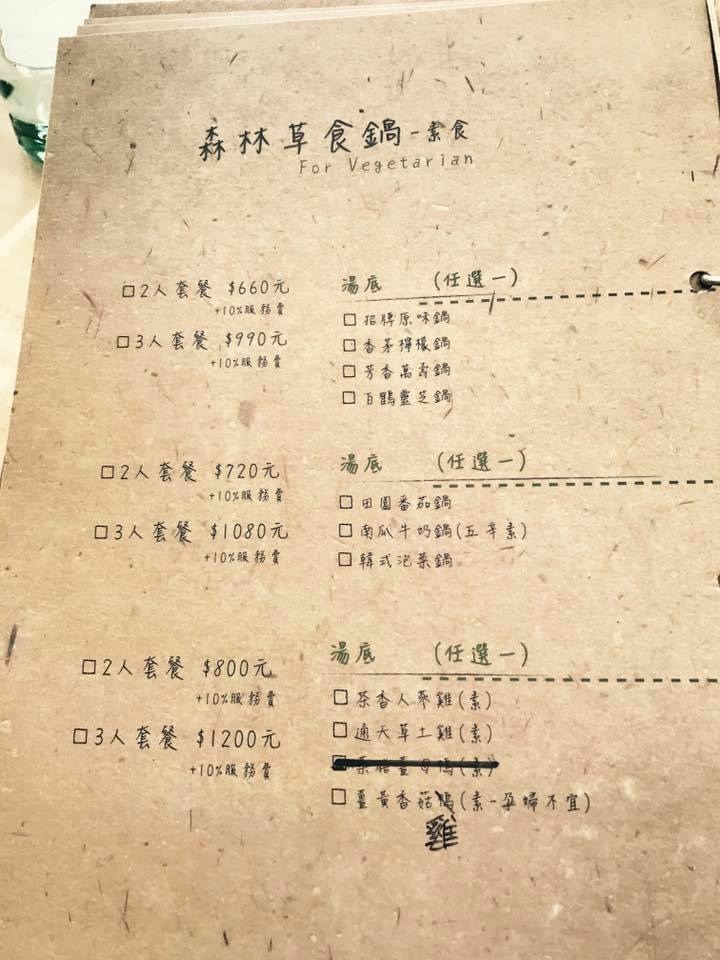 森林草食鍋-素食
For Vegetarian
□2人套餐 $660元
+10%服務費
□3人套餐 $990元
+10%服務費
湯底 (任選一)
□招牌原味鍋
□香茅檸檬鍋
□芳香萬壽鍋
□百鶴靈芝鍋
□2人套餐 $720元
+10%服務費
□3人套餐 $1080元
+10%服務費
湯底 (任選一)
□田園番茄鍋
□南瓜牛奶鍋(五辛素)
□韓式泡菜鍋
□2人套餐 $800元
+10%服務費
□3人套餐 $1200元
+10%服務費
湯底 (任選一)
□茶香人蔘雞(素)
□通天草土雞(素)
薑母鴨(素)
□薑黃香菇鴨(素-孕婦不宜)
雞